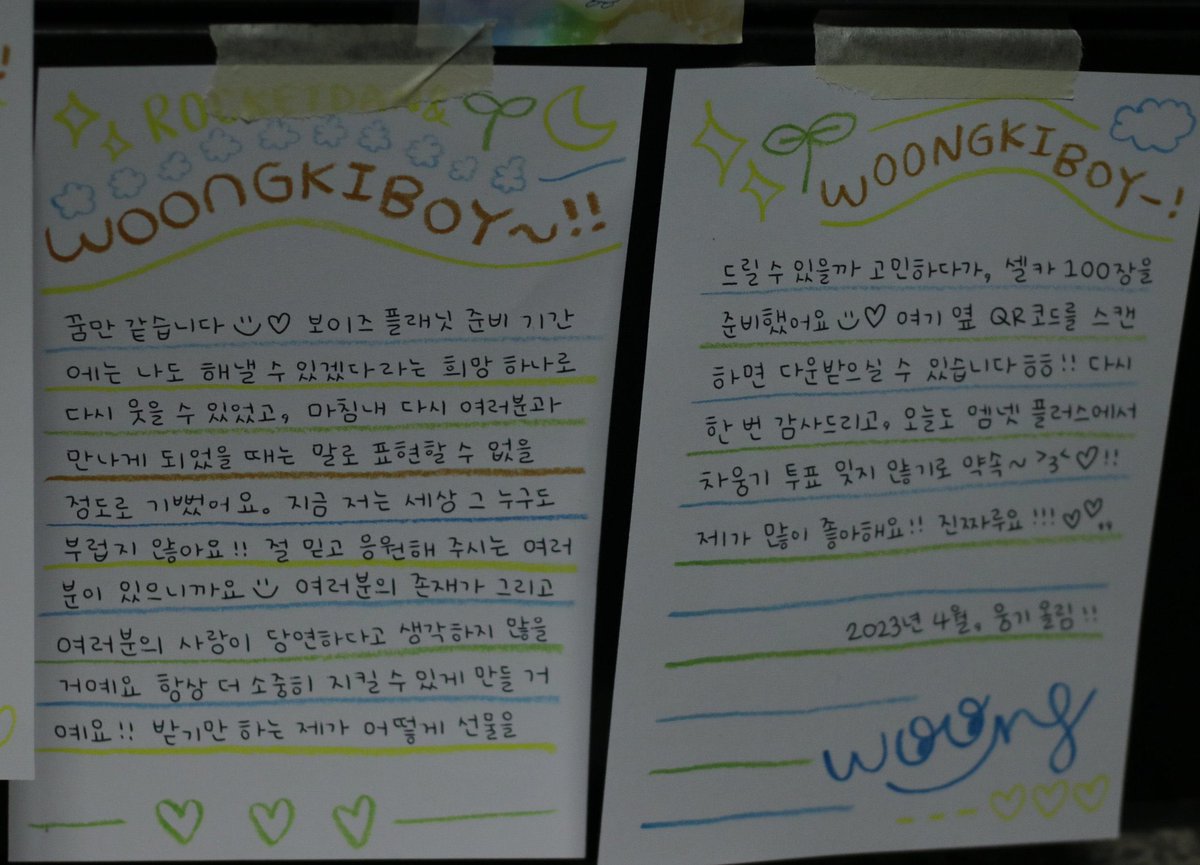 WOONGKIBOY~!!
꿈만 같습니다 ♡ 보이즈 플래닛 준비 기간
에는 나도 해낼 수 있겠다라는 희망 하나로
다시 웃을 수 있었고, 마침내 다시 여러분과
만나게 되었을 때는 말로 표현할 수 없을
정도로 기뻤어요. 지금 저는 세상 그 누구도
부럽지 않아요!! 절 믿고 응원해 주시는 여러
분이 있으니까요 여러분의 존재가 그리고
여러분의 사랑이 당연하다고 생각하지 않을
거예요 항상 더 소중히 지킬 수 있게 만들 거
예요!! 받기만 하는 제가 어떻게 선물을
WOONGKIBOY~!
드릴 수 있을까 고민하다가, 셀카 100장을
준비했어요 ♡ 여기 옆 QR코드를 스캔
하면 다운받으실 수 있습니다 흐흐!! 다시
한 번 감사드리고, 오늘도 엠넷 플러스에서
차웅기 투표 잊지 않기로 약속~ >3< ♡!!
제가 많이 좋아해요!! 진짜루요!!! ♡♡
2023년 4월, 웅기 올림!!
woong